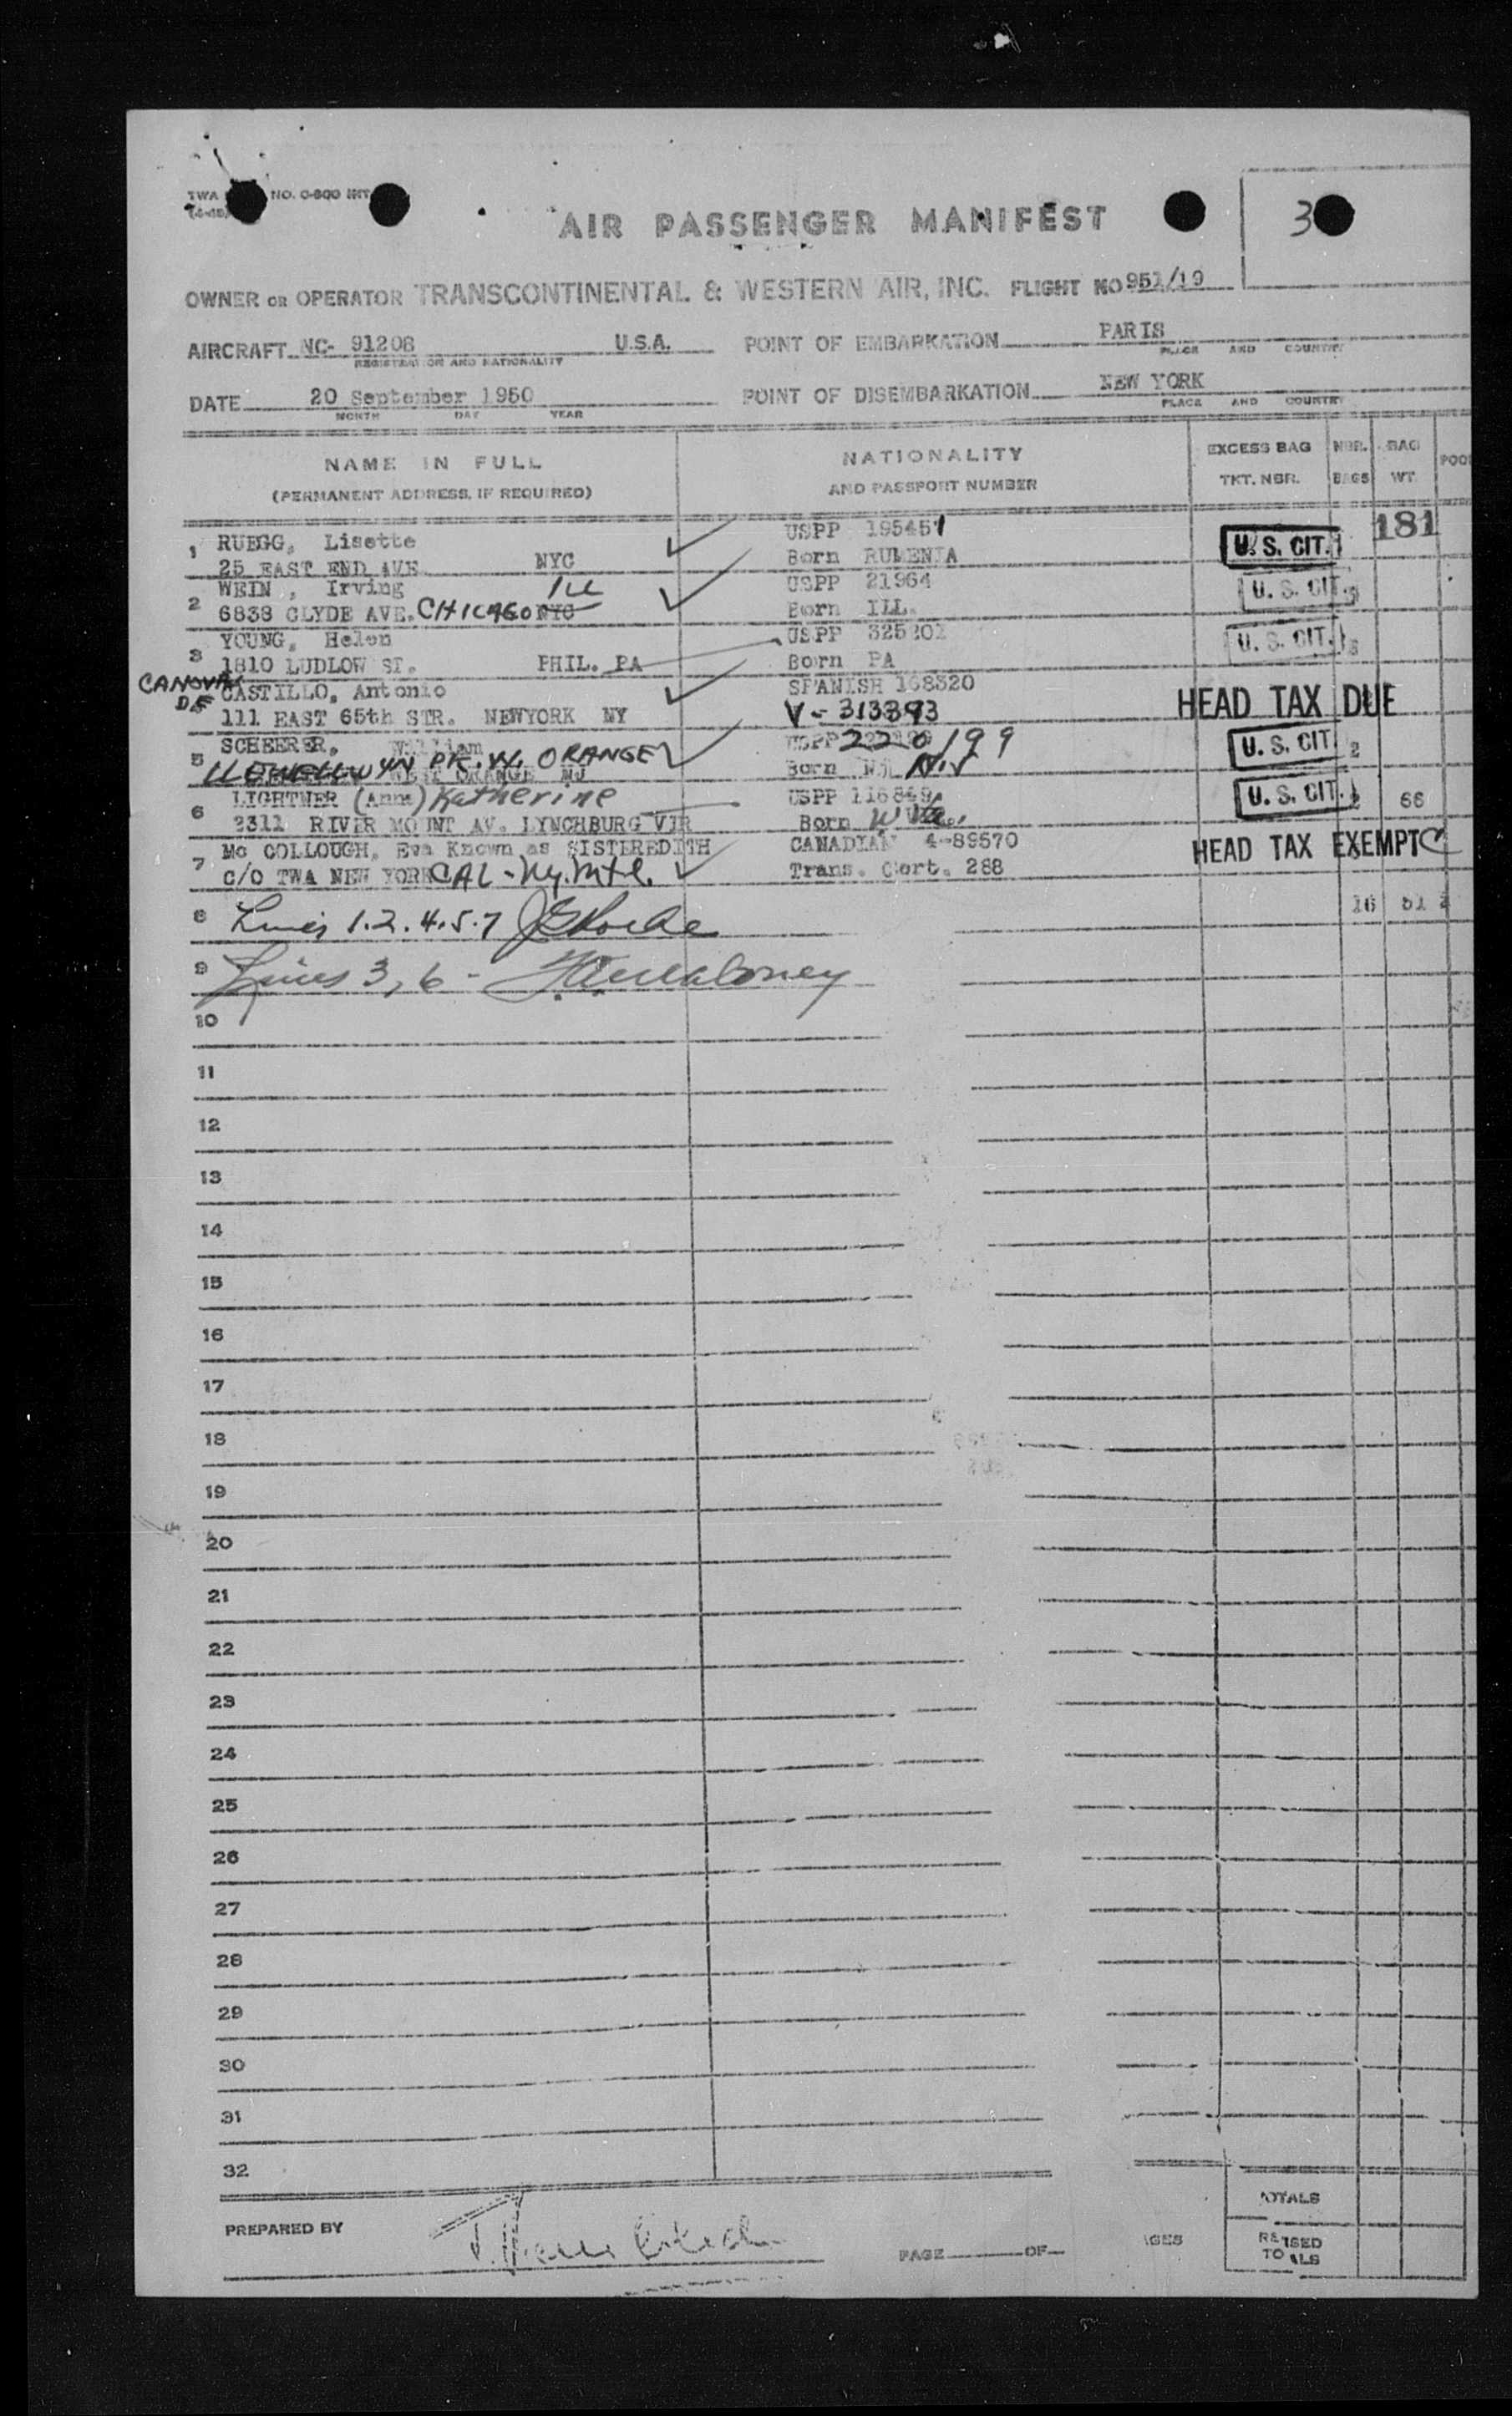 TWA NO. 0-800 INT
3
AIR PASSENGER MANIFEST
OWNER OR OPERATOR TRANSCONTINENTAL & WESTERN AIR, INC. FLIGHT NO 951/19
AIRCRAFT NC- 91208 U.S.A. POINT OF EMBARKATION PARIS
REGISTRATION AND NATIONALITY PLACE AND COUNTRY
DATE 20 September 1950 POINT OF DISEMBARKATION NEW YORK
MONTH DAY YEAR PLACE AND COUNTRY
NAME IN FULL NATIONALITY EXCESS BAG NBR. BAG
(PERMANENT ADDRESS, IF REQUIRED) AND PASSPORT NUMBER TKT. NBR. BAGS WT. POO
181
RUEGG, Lisette USPP 195451
1 25 EAST END AVE NYC Born RUMENIA U.S. CIT.
WEIN, Irving ILL USPP 21964
2 6838 CLYDE AVE. CHICAGO NYC Born ILL. U.S. CIT.
YOUNG, Helen USPP
3 1810 LUDLOW ST. PHIL. PA Born PA U.S. CIT.
CANOVAS DE CASTILLO, Antonio SPANISH 168320
111 EAST 65th STR. NEWYORK NY V-313393 HEAD TAX DUE
SCHEERER, William USPP 220199 U.S. CIT. 2
5 LLEWELLWYN PK. W. ORANGE WEST ORANGE NJ Born NJ N.J
LIGHTNER (Anna) Katherine USPP 116849 U.S. CIT. 66
6 2311 RIVER MOUNT AV. LYNCHBURG VIR Born W Va.
Mc COLLOUGH, Eva Known as SISTEREDITH CANADIAN 4-89570 HEAD TAX EXEMPT C
7 C/O TWA NEW YORK CAL-Ny.Mtl. Trans. Cert. 288
8 Lines 1.2.4.5.7 16 51
9 Lines 3, 6 - Maloney
10
11
12
13
14
15
16
17
18
19
20
21
22
23
24
25
26
27
28
29
30
31
32
TOTALS
PREPARED BY PAGE OF AGES REVISED TOTALS